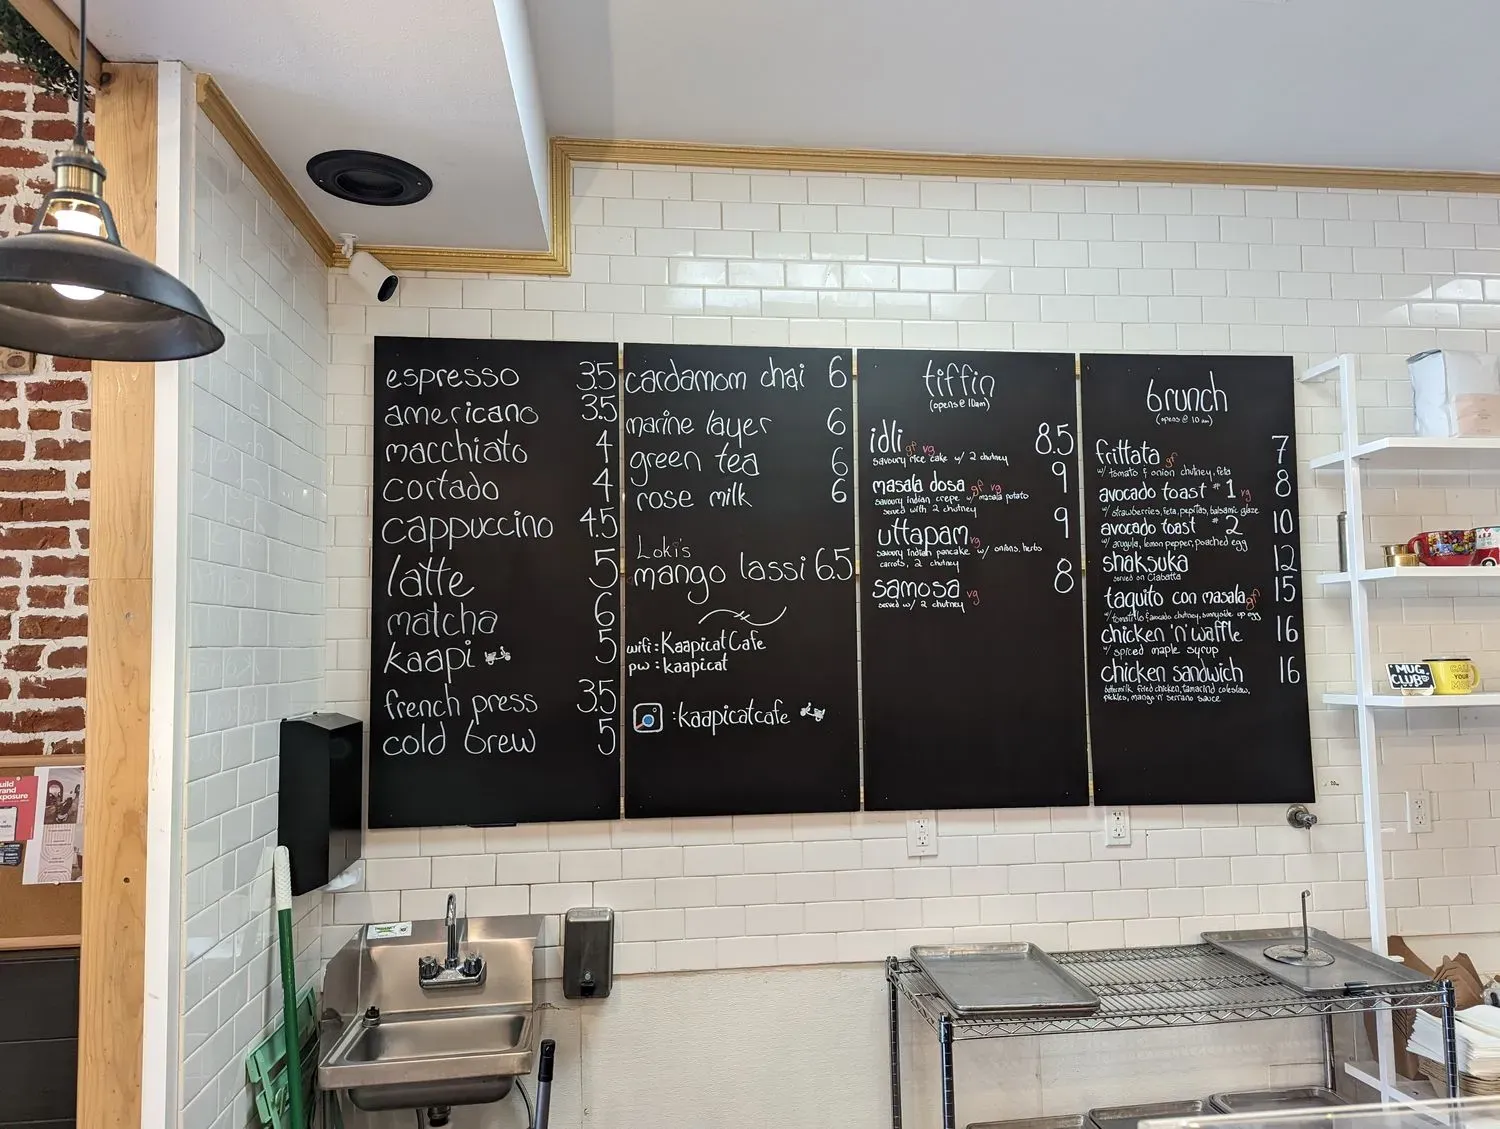 espresso 3.5
americano 3.5
macchiato 4
cortado 4
cappuccino 4.5
latte 5
matcha 6
kaapi 5
french press 3.5
cold brew 5
cardamom chai 6
marine layer 6
green tea 6
rose milk 6
Loki's
mango lassi 6.5
wifi: Kaapicat Cafe
pw: kaapicat
:kaapicatcafe
tiffin
(opens @ 10am)
idli gf vg 8.5
savoury rice cake w/ 2 chutney
masala dosa gf vg 9
savoury indian crepe w/ masala potato
served with 2 chutney
uttapam vg 9
savoury indian pancake w/ onions, herbs
carrots, 2 chutney
samosa vg 8
served w/ 2 chutney
brunch
(opens @ 10am)
frittata gf 7
w/ tomato & onion chutney, feta
avocado toast #1 vg 8
w/ strawberries, feta, pepitas, balsamic glaze
avocado toast #2 10
w/ arugula, lemon pepper, poached egg
shaksuka 12
served on Ciabatta
taquito con masala gf 15
w/ tomatillo avocado chutney, sunnyside up egg
chicken 'n' waffle 16
w/ spiced maple syrup
chicken sandwich 16
buttermilk fried chicken, tamarind coleslaw,
pickles, mango 'n' serrano sauce
MUG
CLUB